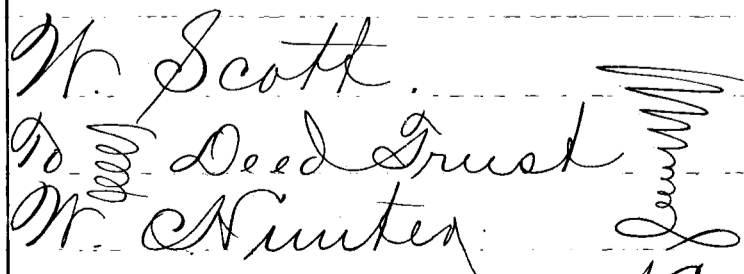 W. Scott.
To Deed Trust
W. Hunter